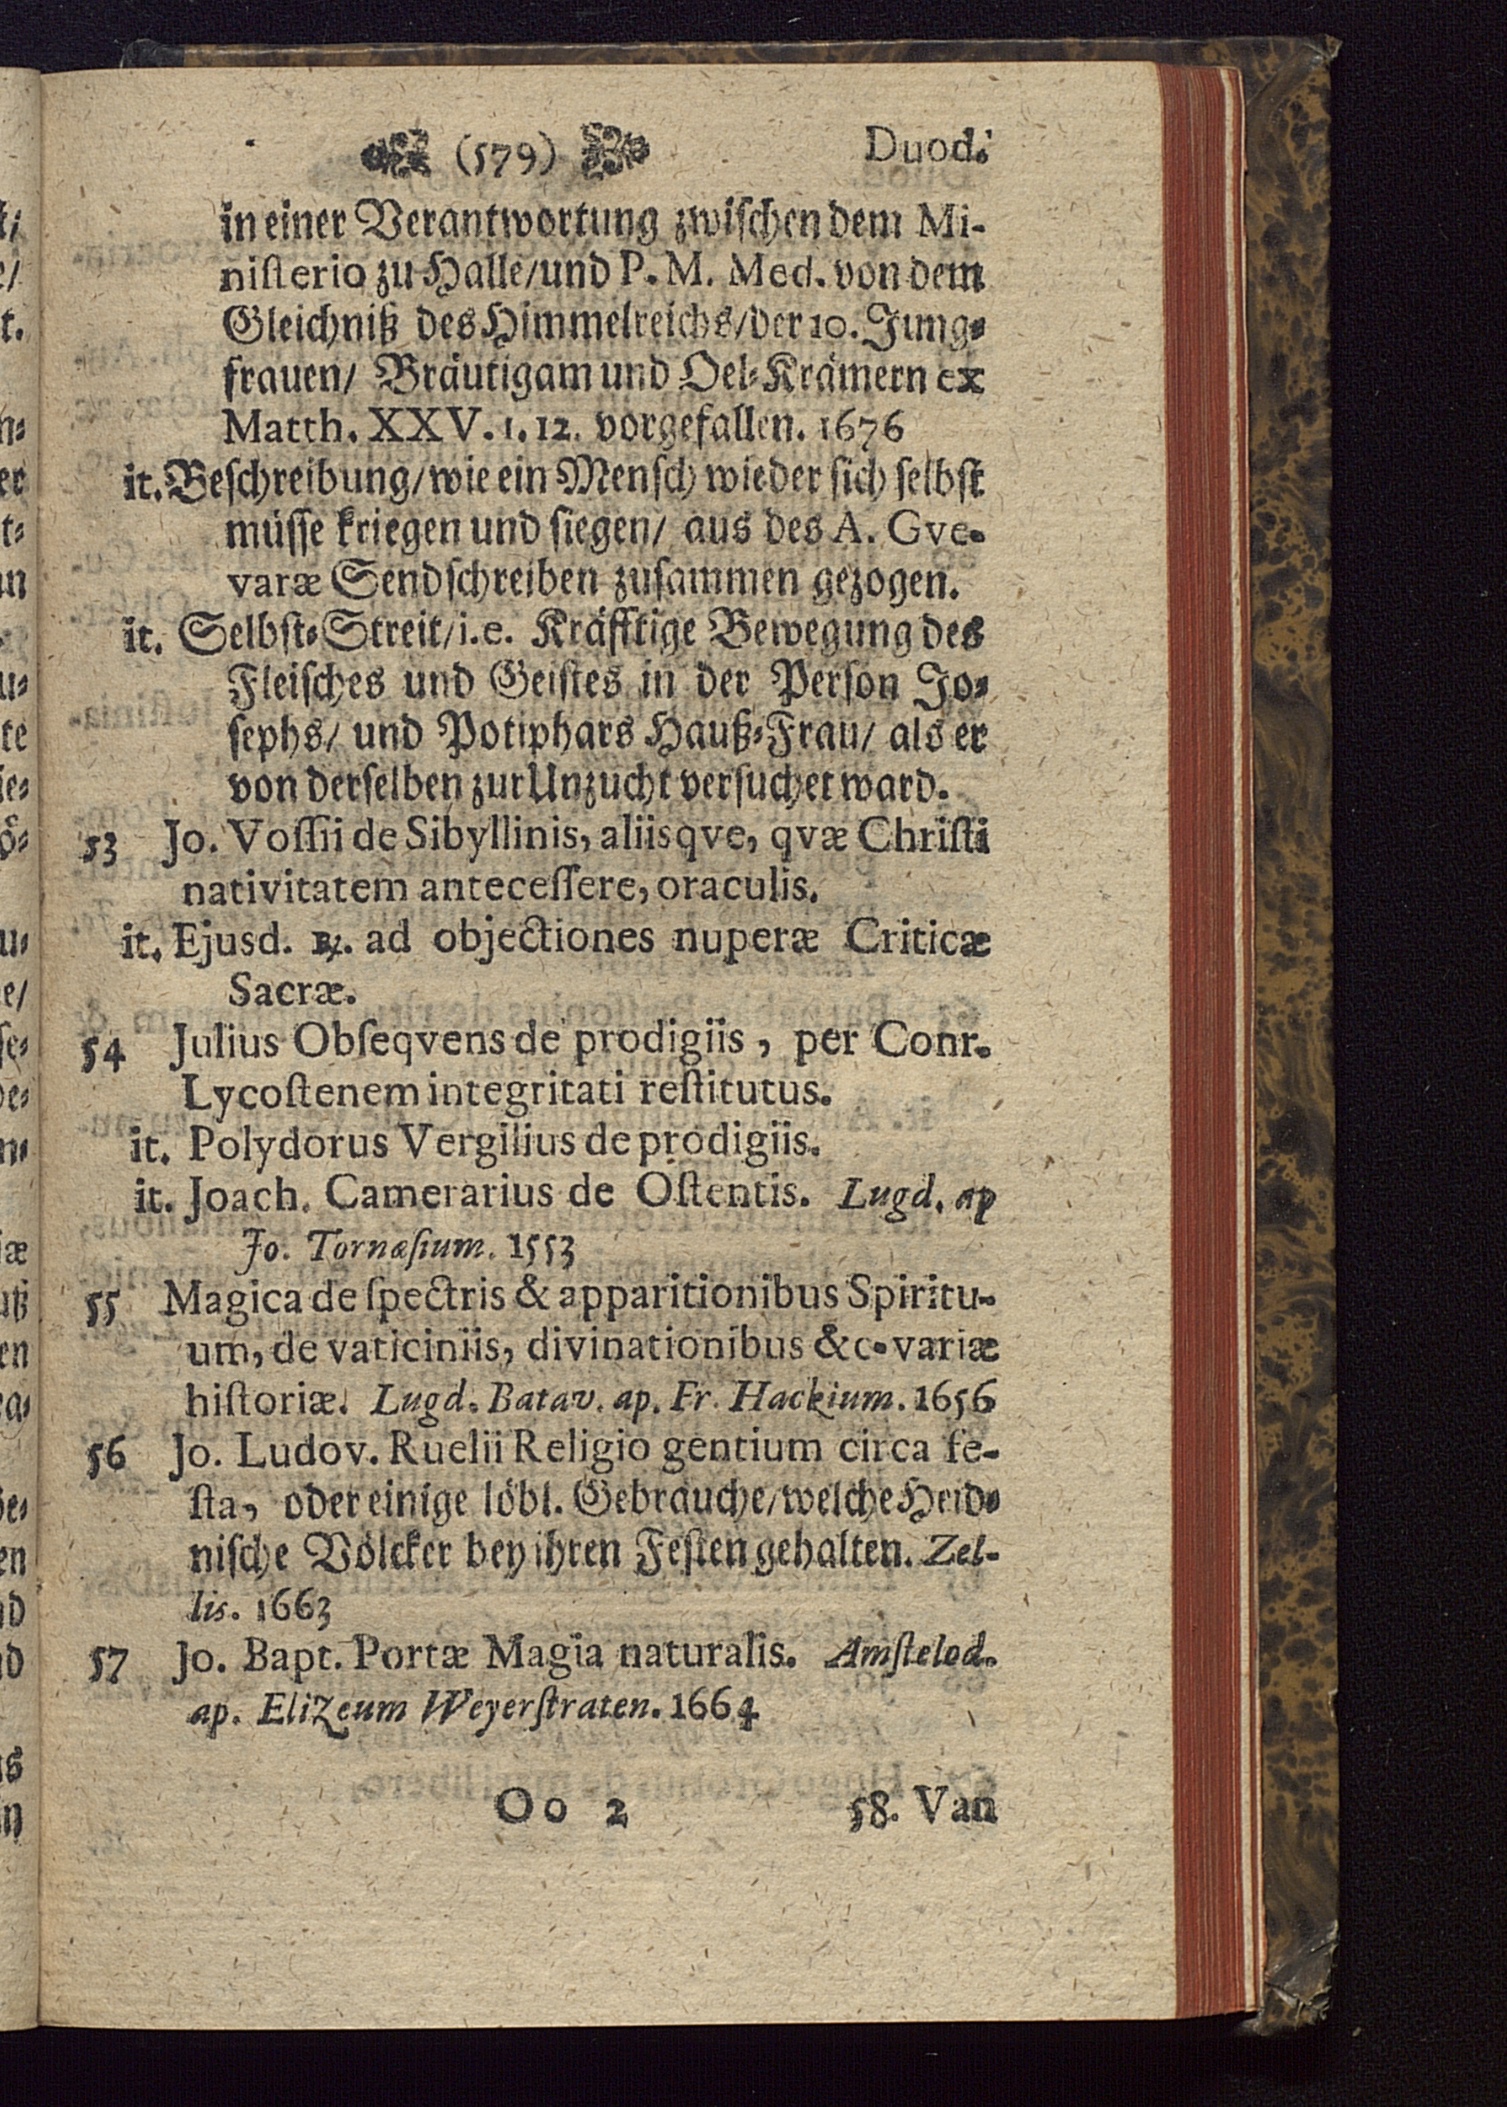 (579) Duod.
in einer Verantwortung zwischen dem Mi-
nisterio zu Halle/und P. M. Med. von dem
Gleichniß des Himmelreichs/der 10. Jung-
frauen/ Bräutigam und Oel-Krämern ex
Matth. XXV. 1. 12. vorgefallen. 1676
it. Beschreibung/wie ein Mensch wieder sich selbst
müsse kriegen und siegen/ aus des A. Gve-
varæ Sendschreiben zusammen gezogen.
it. Selbst-Streit/i.e. Kräfftige Bewegung des
Fleisches und Geistes in der Person Jo-
sephs/ und Potiphars Hauß-Frau/ als er
von derselben zur Unzucht versuchet ward.
53 Jo. Vossii de Sibyllinis, aliisqve, qvæ Christi
nativitatem antecessere, oraculis.
it. Ejusd. ad objectiones nuperæ Criticæ
Sacræ.
54 Julius Obseqvens de prodigiis, per Conr.
Lycostenem integritati restitutus.
it. Polydorus Vergilius de prodigiis.
it. Joach. Camerarius de Ostentis. Lugd. ap
Jo. Tornæsium. 1553
55 Magica de spectris & apparitionibus Spiritu-
um, de vaticiniis, divinationibus &c. variæ
historiæ. Lugd. Batav. ap. Fr. Hackium. 1656
56 Jo. Ludov. Ruelii Religio gentium circa fe-
sta, oder einige löbl. Gebräuche/welche Heid-
nische Völcker bey ihren Festen gehalten. Zel-
lis. 1663
57 Jo. Bapt. Portæ Magia naturalis. Amstelod.
ap. Elizeum Weyerstraten. 1664
Oo 2 58. Van